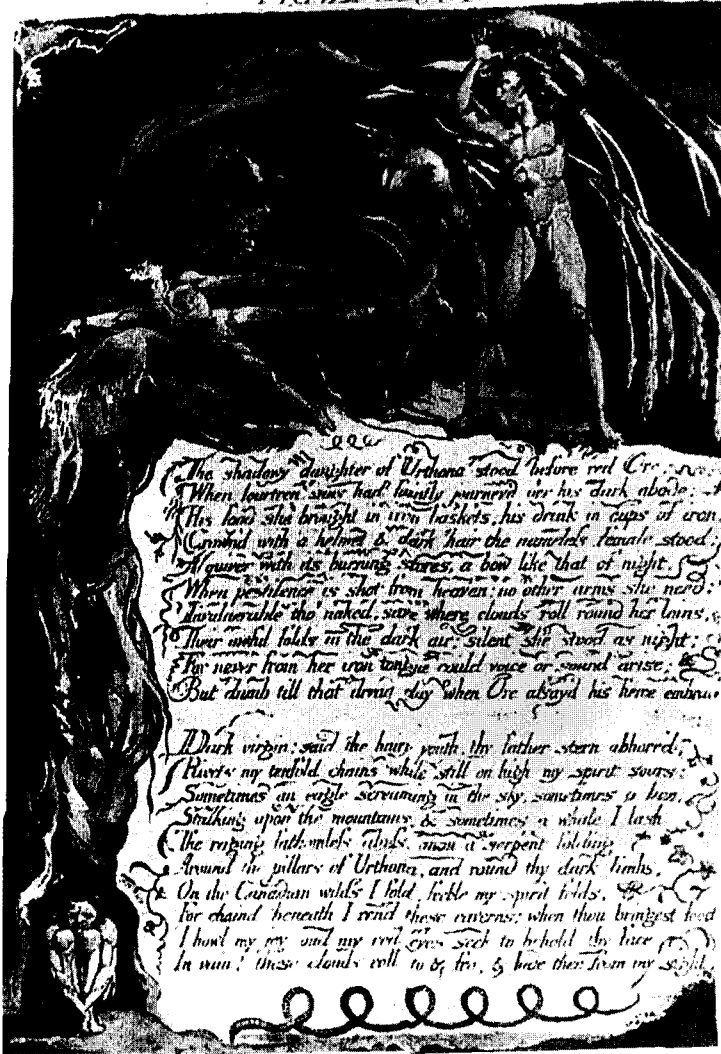 The shadowy daughter of Urthona stood before red Orc.
When fourteen suns had faintly journey'd o'er his dark abode;
His food she brought in iron baskets, his drink in cups of iron
Crown'd with a helmet & dark hair the nameless female stood;
A quiver with its burning stores, a bow like that of night,
When pestilence is shot from heaven; no other arms she need:
Invulnerable tho' naked, save where clouds roll round her loins,
Their awful folds in the dark air; silent she stood as night;
For never from her iron tongue could voice or sound arise;
But dumb till that dread day when Orc assay'd his fierce embrace.
Dark virgin; said the hairy youth, thy father stern abhorr'd;
Rivets my tenfold chains while still on high my spirit soars;
Sometimes an eagle screaming in the sky, sometimes a lion,
Stalking upon the mountains, & sometimes a whale I lash
The raging fathomless abyss, anon a serpent folding
Around the pillars of Urthona, and round thy dark limbs,
On the Canadian wilds I fold, feeble my spirit folds.
For chaind beneath I rend these caverns; when thou bringest food
I howl my joy and my red eyes seek to behold thy face
In vain! these clouds roll to & fro, & hide thee from my sight.